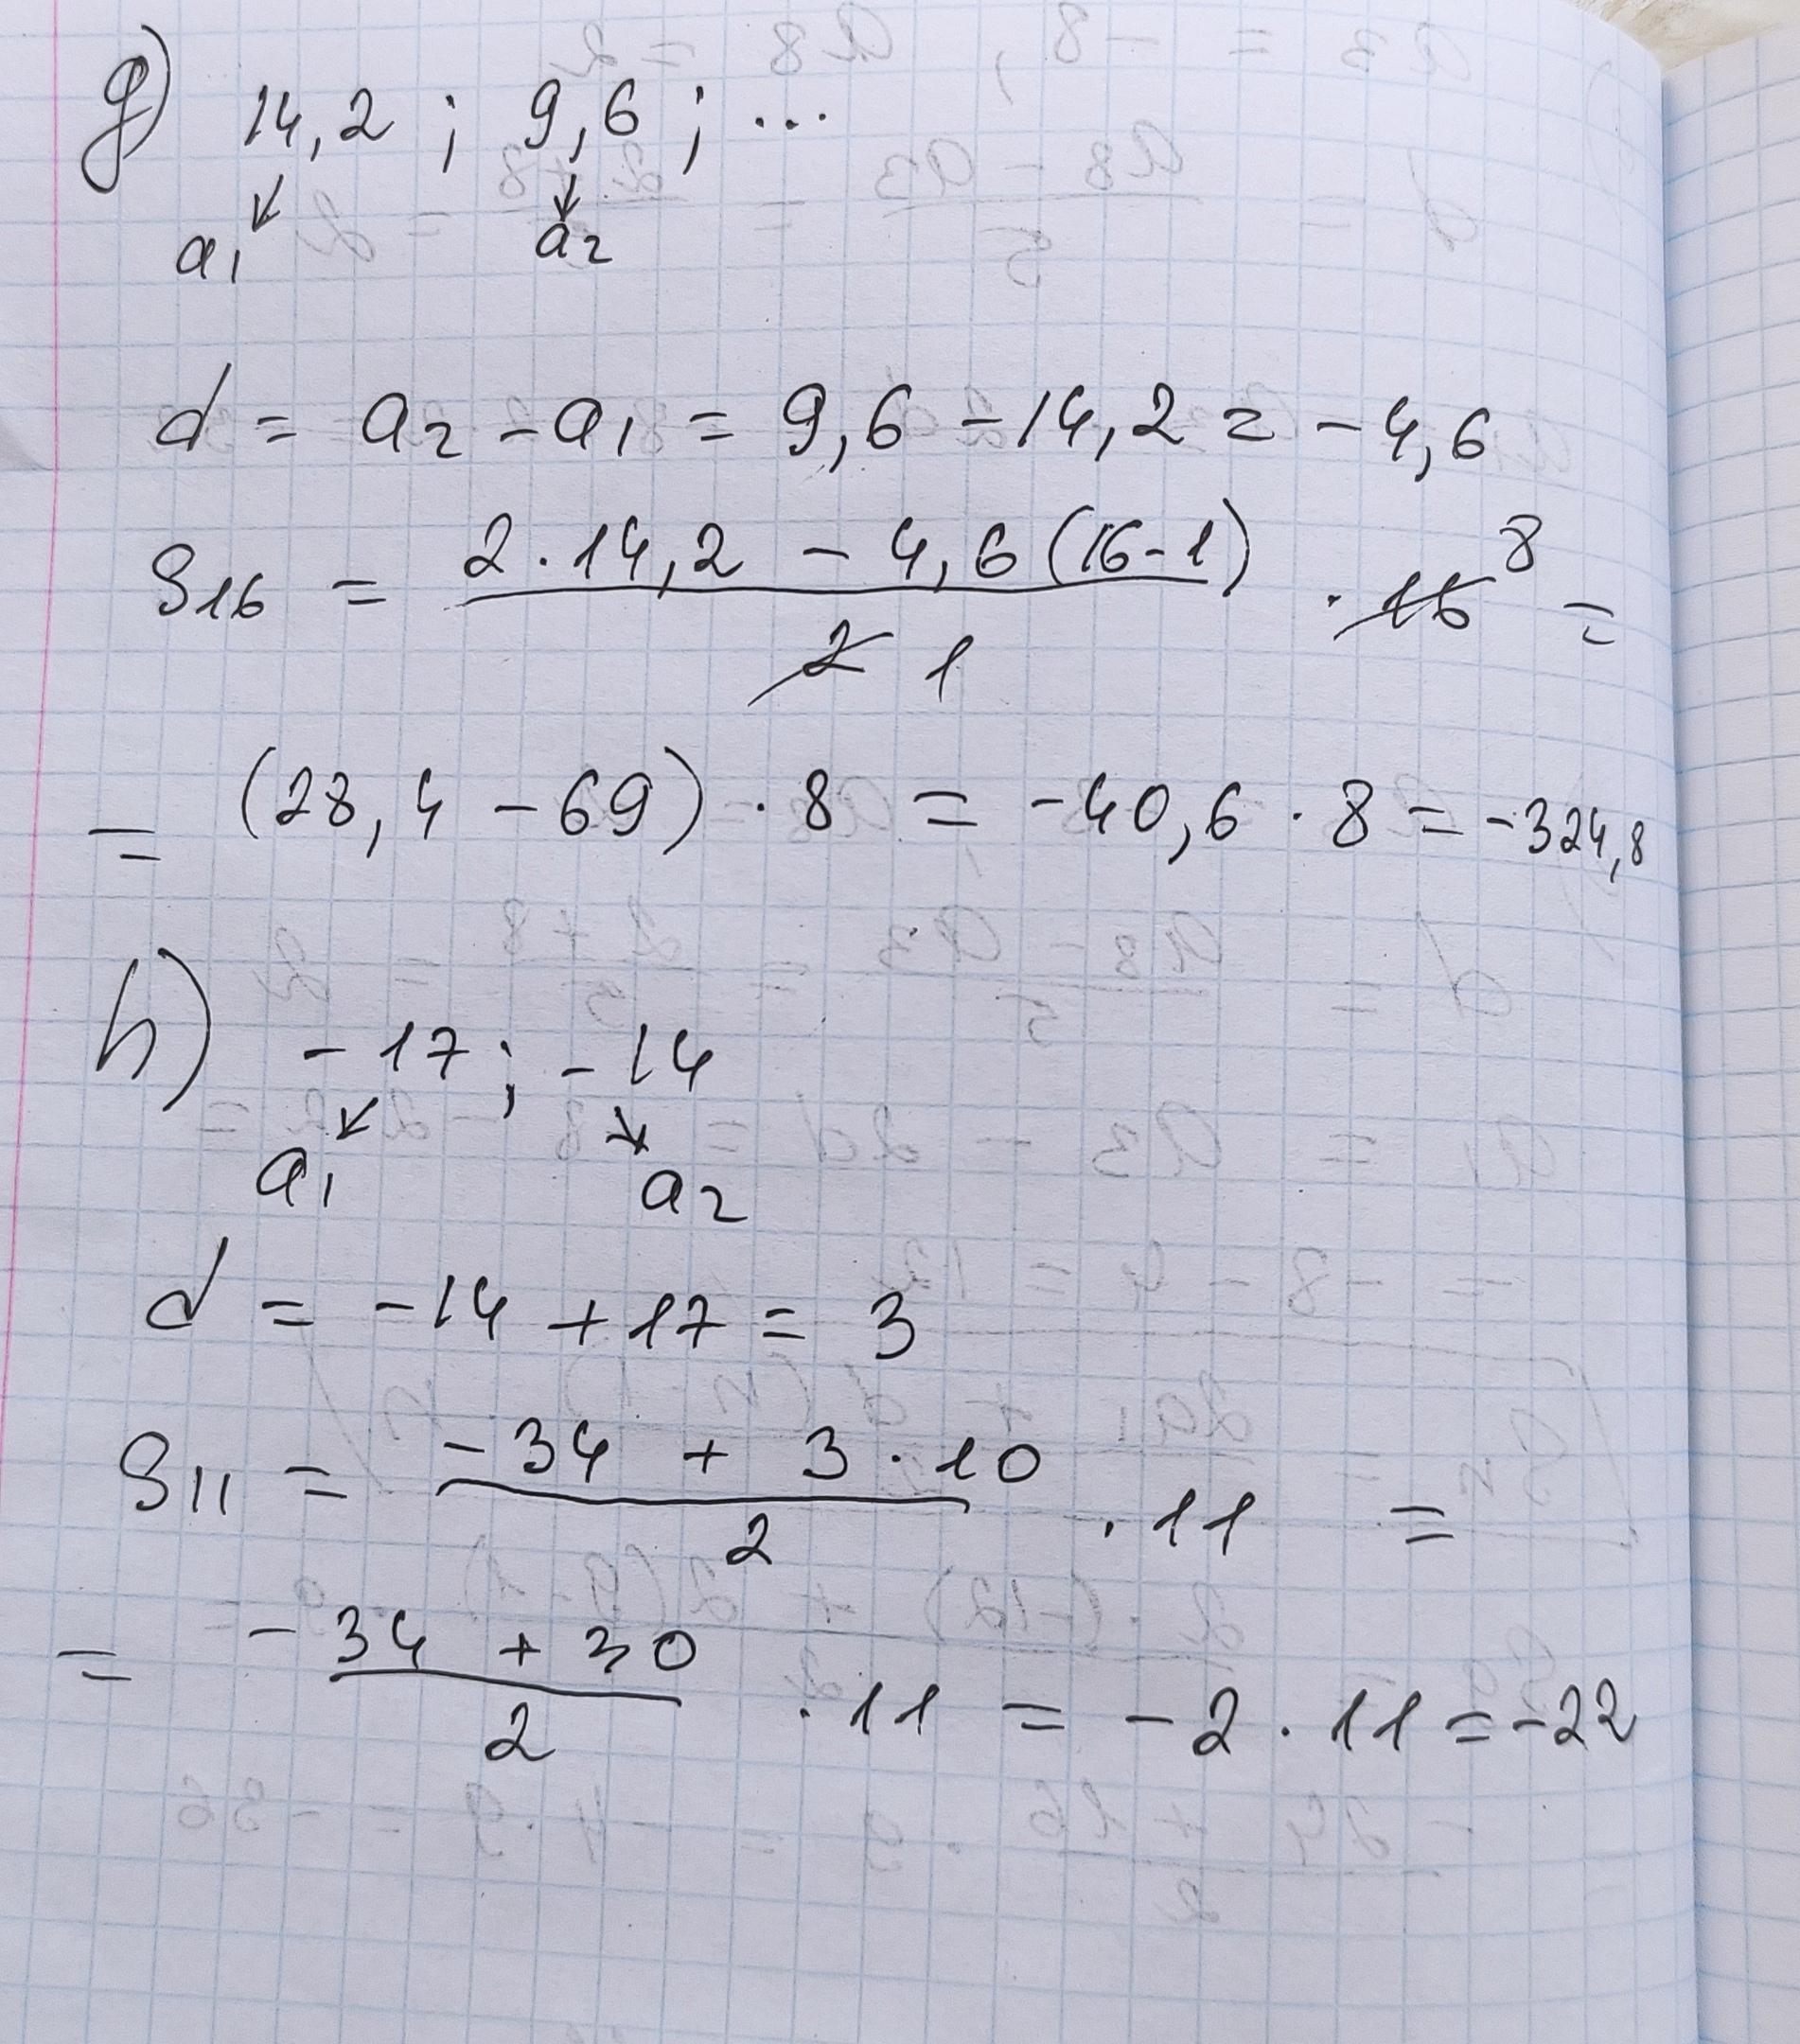 g) 14,2 ; 9,6 ; ...
↙ ↓
a₁ a₂
d = a₂ - a₁ = 9,6 - 14,2 = - 4,6
S₁₆ = (2 · 14,2 - 4,6 (16-1)) / 2 1 · 16 8 =
= (28,4 - 69) · 8 = -40,6 · 8 = -324,8
h) - 17 ; - 14
↙ ↘
a₁ a₂
d = -14 + 17 = 3
S₁₁ = (- 34 + 3 · 10) / 2 · 11 =
= (- 34 + 30) / 2 · 11 = - 2 · 11 = -22